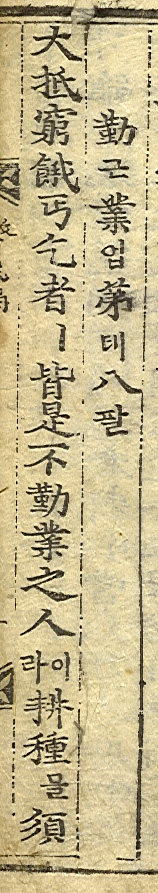 勤근業업第뎨八팔
大抵窮餓丐乞者ㅣ皆是不勤業之人이라耕種을須